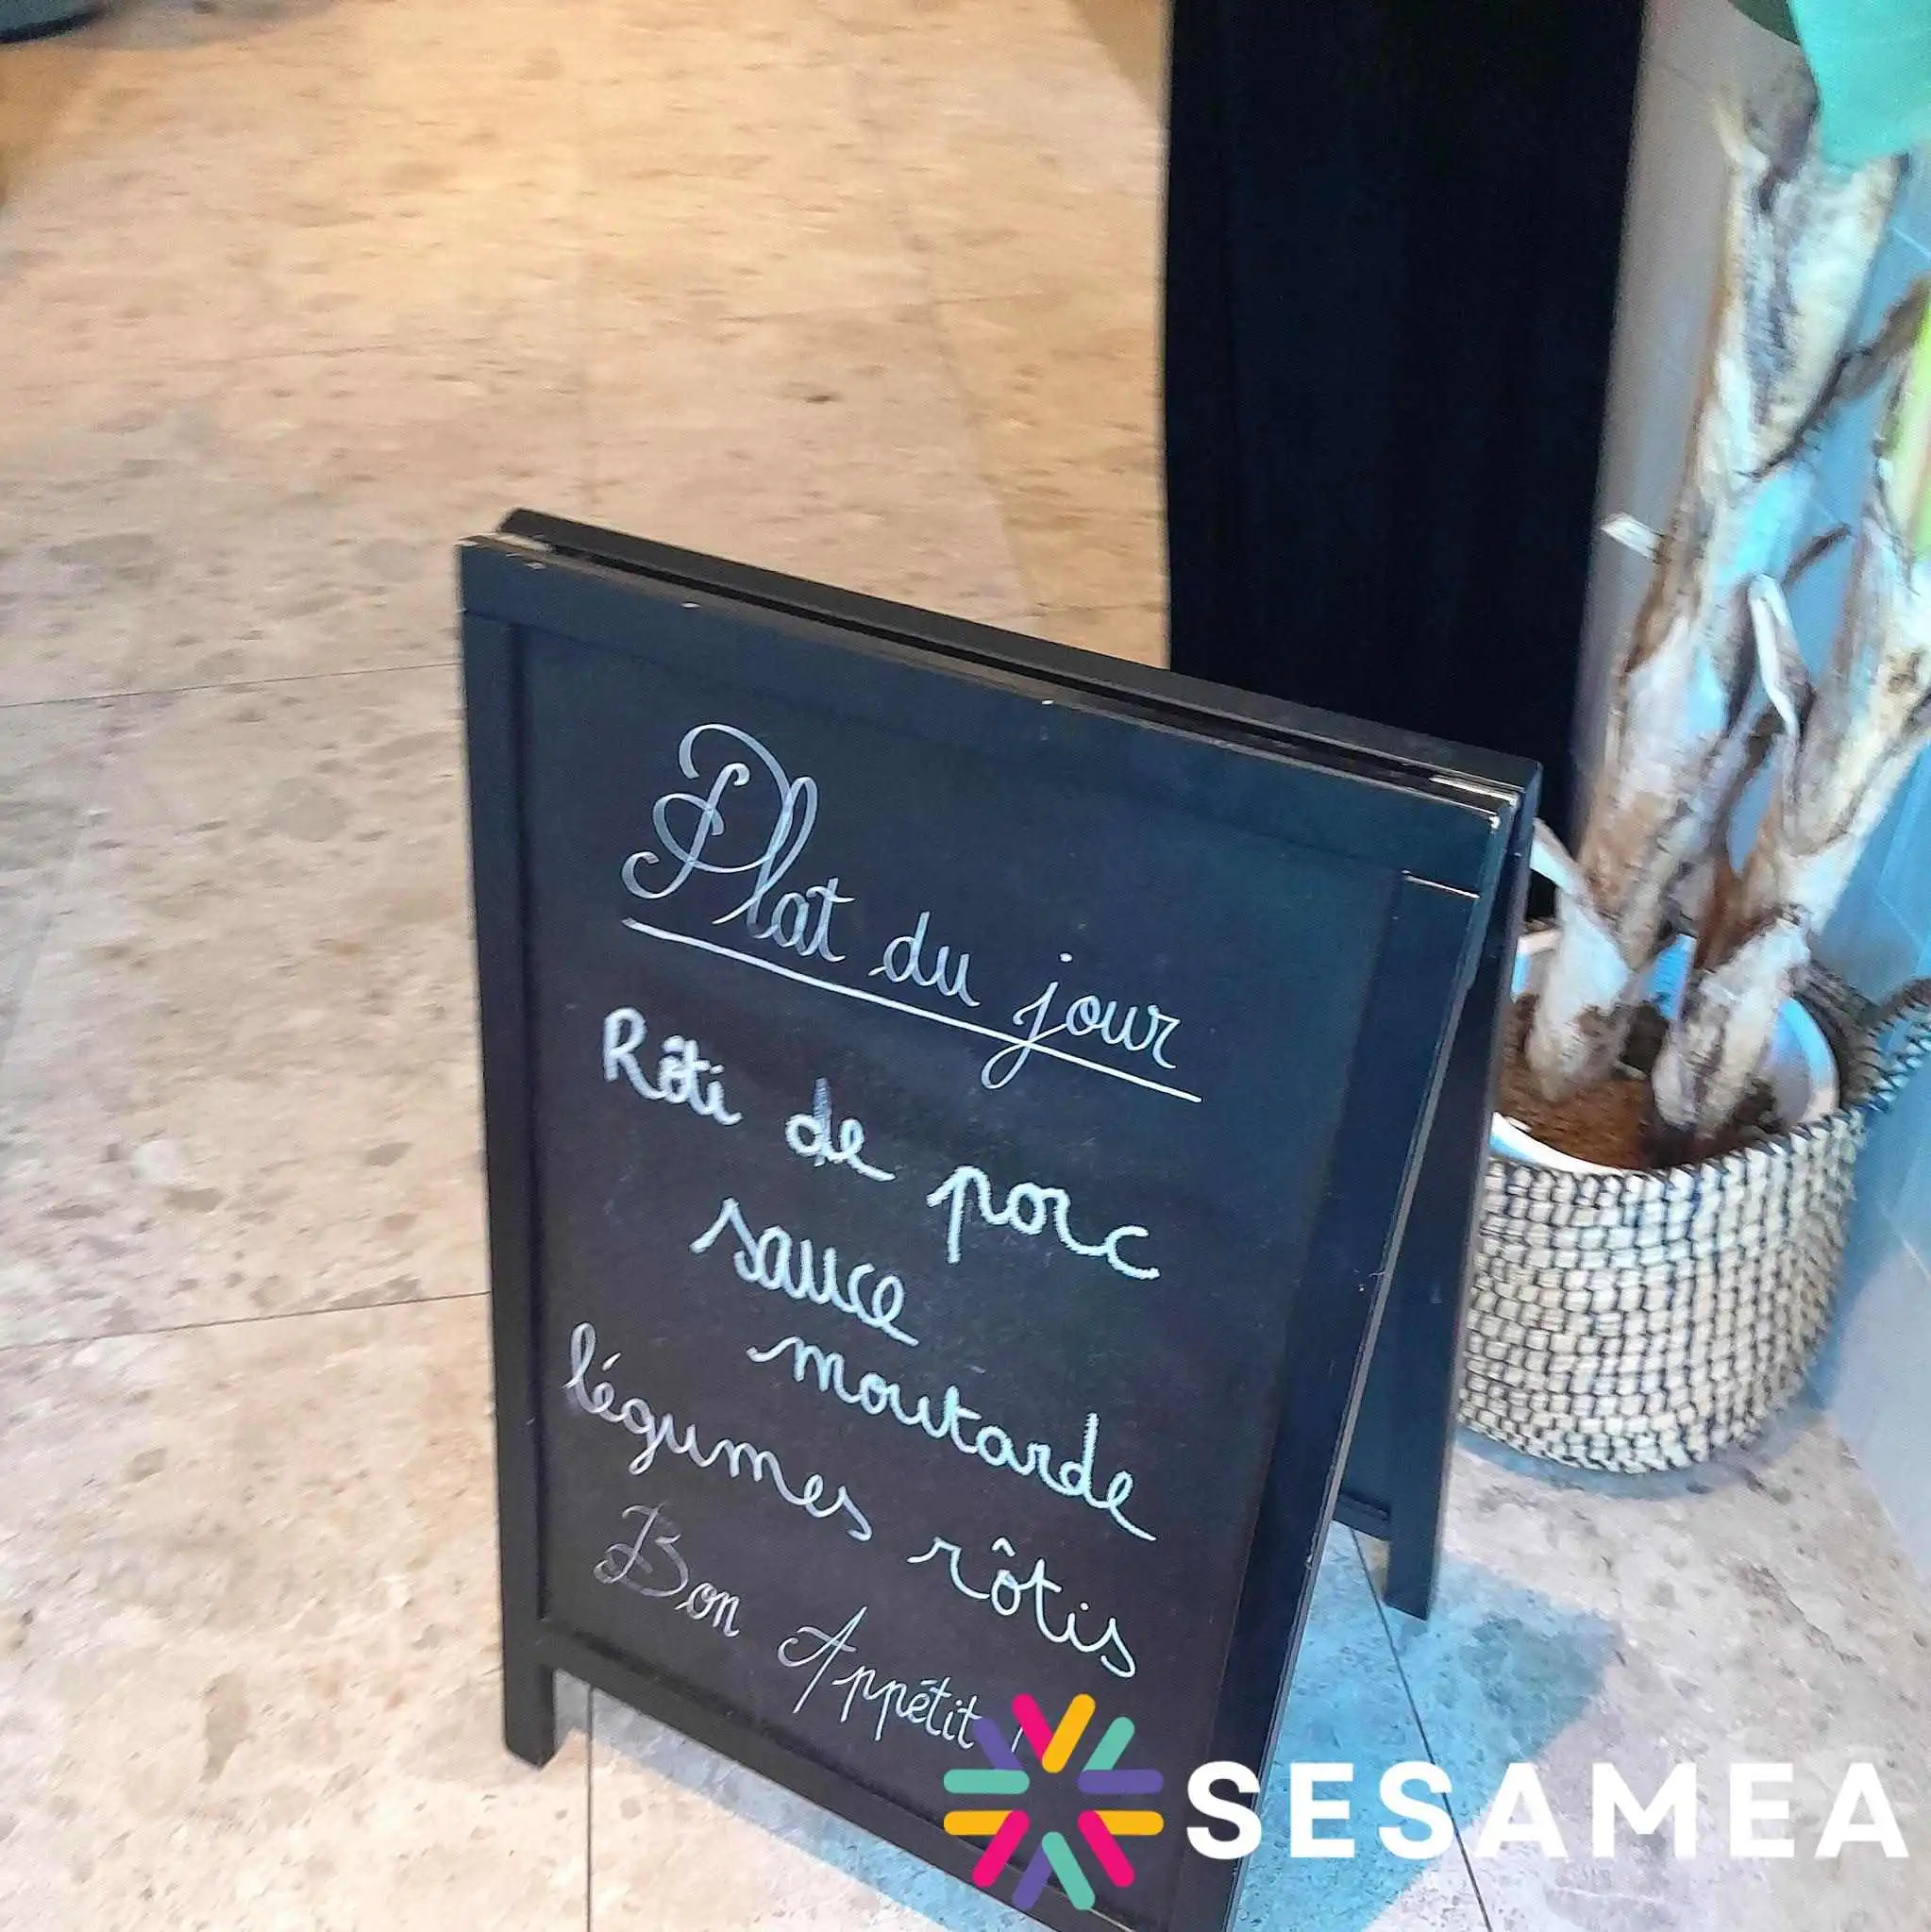 Plat du jour
Rôti de porc
sauce
moutarde
légumes rôtis
Bon Appétit !
SESAMEA